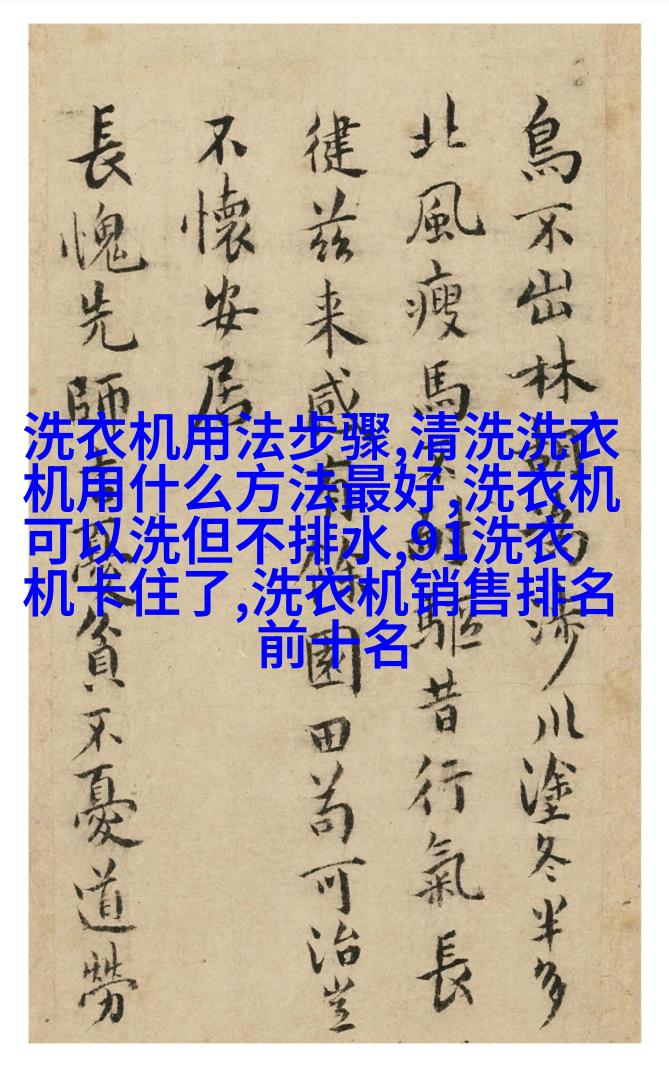 鳥不出林胡為涉川塗冬半多
北風瘦馬不驅昔行氣長
徤兹来感有園田苟可治豈
不懷安居
長愧先師憂貧不憂道勞
洗衣机用法步骤,清洗洗衣
机用什么方法最好,洗衣机
可以洗但不排水,91洗衣
机卡住了,洗衣机销售排名
前十名